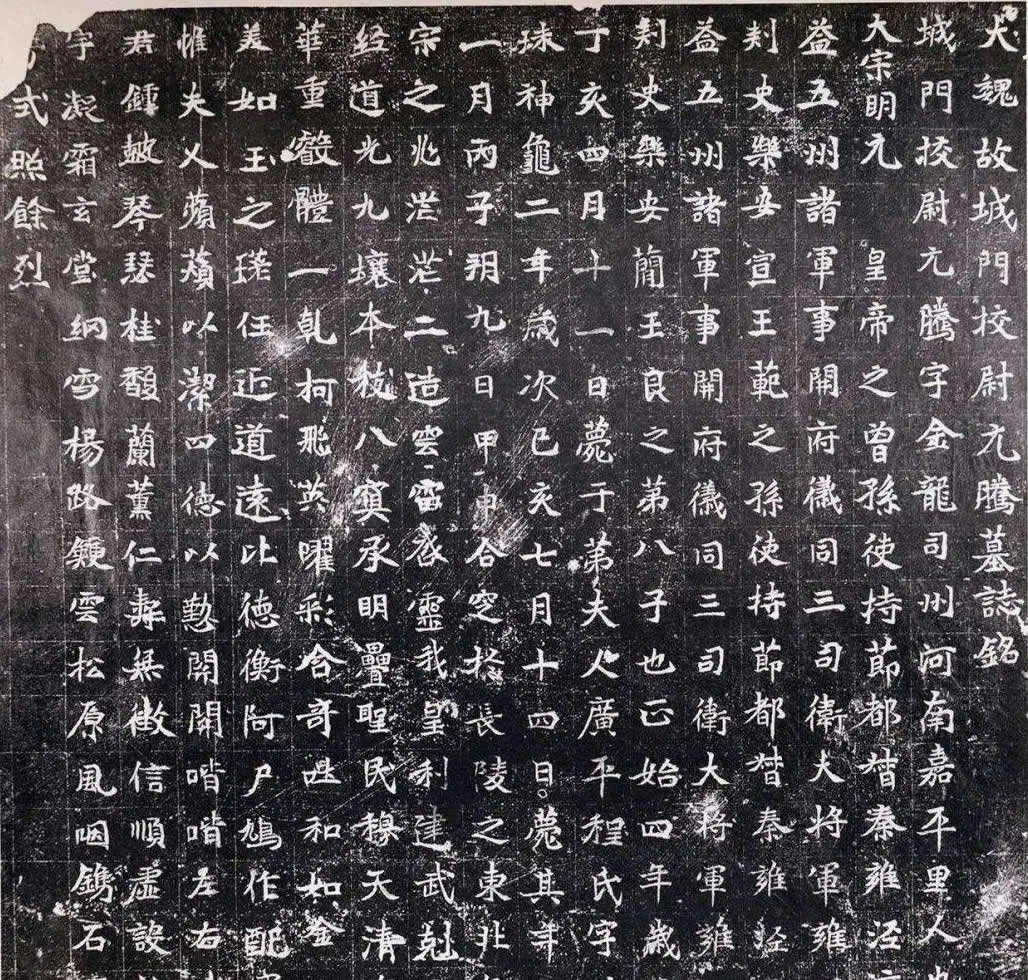 大魏故城門挍尉元騰墓誌銘
城門挍尉元騰字金龍司州河南嘉平里人
大宗明元　皇帝之曾孫使持節都督秦雍涇
益五州諸軍事開府儀同三司衛大將軍雍
刾史樂安宣王範之孫使持節都督秦雍涇
益五州諸軍事開府儀同三司衛大將軍雍
刾史樂安簡王良之第八子也正始四年歲
丁亥四月十一日薨于第夫人廣平程氏字
珠神龜二年歲次己亥七月十四日薨其年
一月丙子朔九日甲申合窆於長陵之東北
宗之兆茫茫二造雲雷啓靈我皇利建武剋
经道光九壤本枝八寘承明疊聖民穆天清
華重叡體一軋柯飛英曜彩含奇挺和如金
美如玉之瑛任近道遠比德衡阿尸鳩作配
惟夫人蘋蘋以潔四德以懃關關喈喈左右
君鍾皷琴瑟桂馥蘭薰仁壽無徵信順虛設
字凝霜玄堂網雪楊路鍾雲松原風咽鐫石
式照餘烈